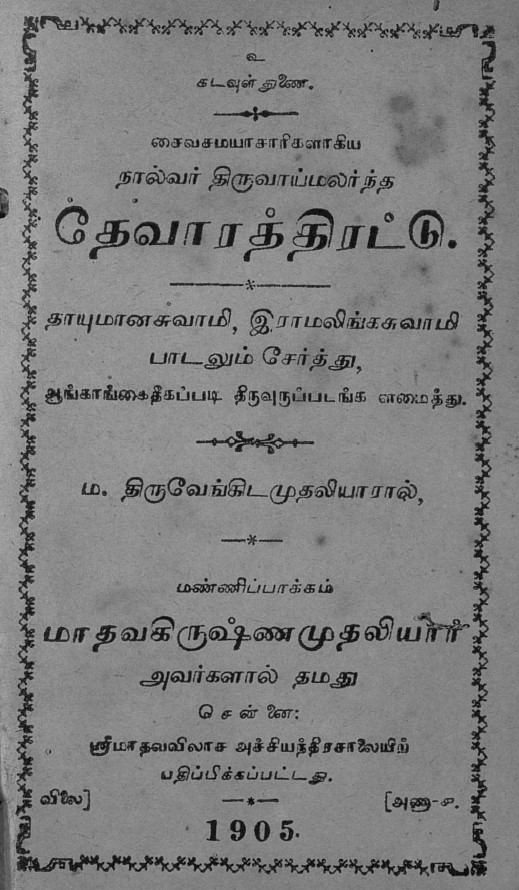 உ
கடவுள் துணை.
சைவசமயாசாரிகளாகிய
நால்வர் திருவாய்மலர்ந்த
தேவாரத்திரட்டு.
தாயுமானசுவாமி, இராமலிங்கசுவாமி
பாடலும் சேர்த்து,
ஆங்காங்கைதீகப்படி திருவுருப்படங்க ளமைத்து.
ம. திருவேங்கிடமுதலியாரால்,
மண்ணிப்பாக்கம்
மாதவகிருஷ்ணமுதலியார்
அவர்களால் தமது
சென்னை:
ஸ்ரீமாதவவிலாச அச்சியந்திரசாலையிற்
பதிப்பிக்கப்பட்டது.
விலை] [அணா-௪.
1905.